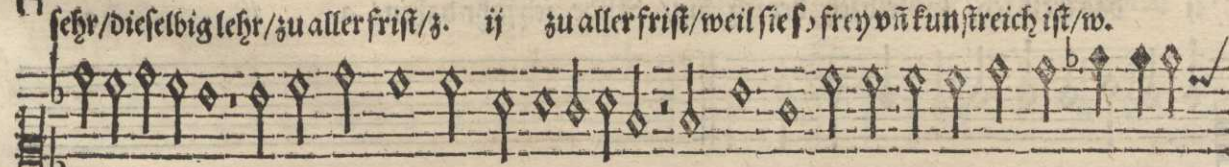 ſehr/dieſelbig lehr/zu aller friſt/z. ij zu aller friſt/weil ſie ſo frey vñ kunſtreich iſt/w.